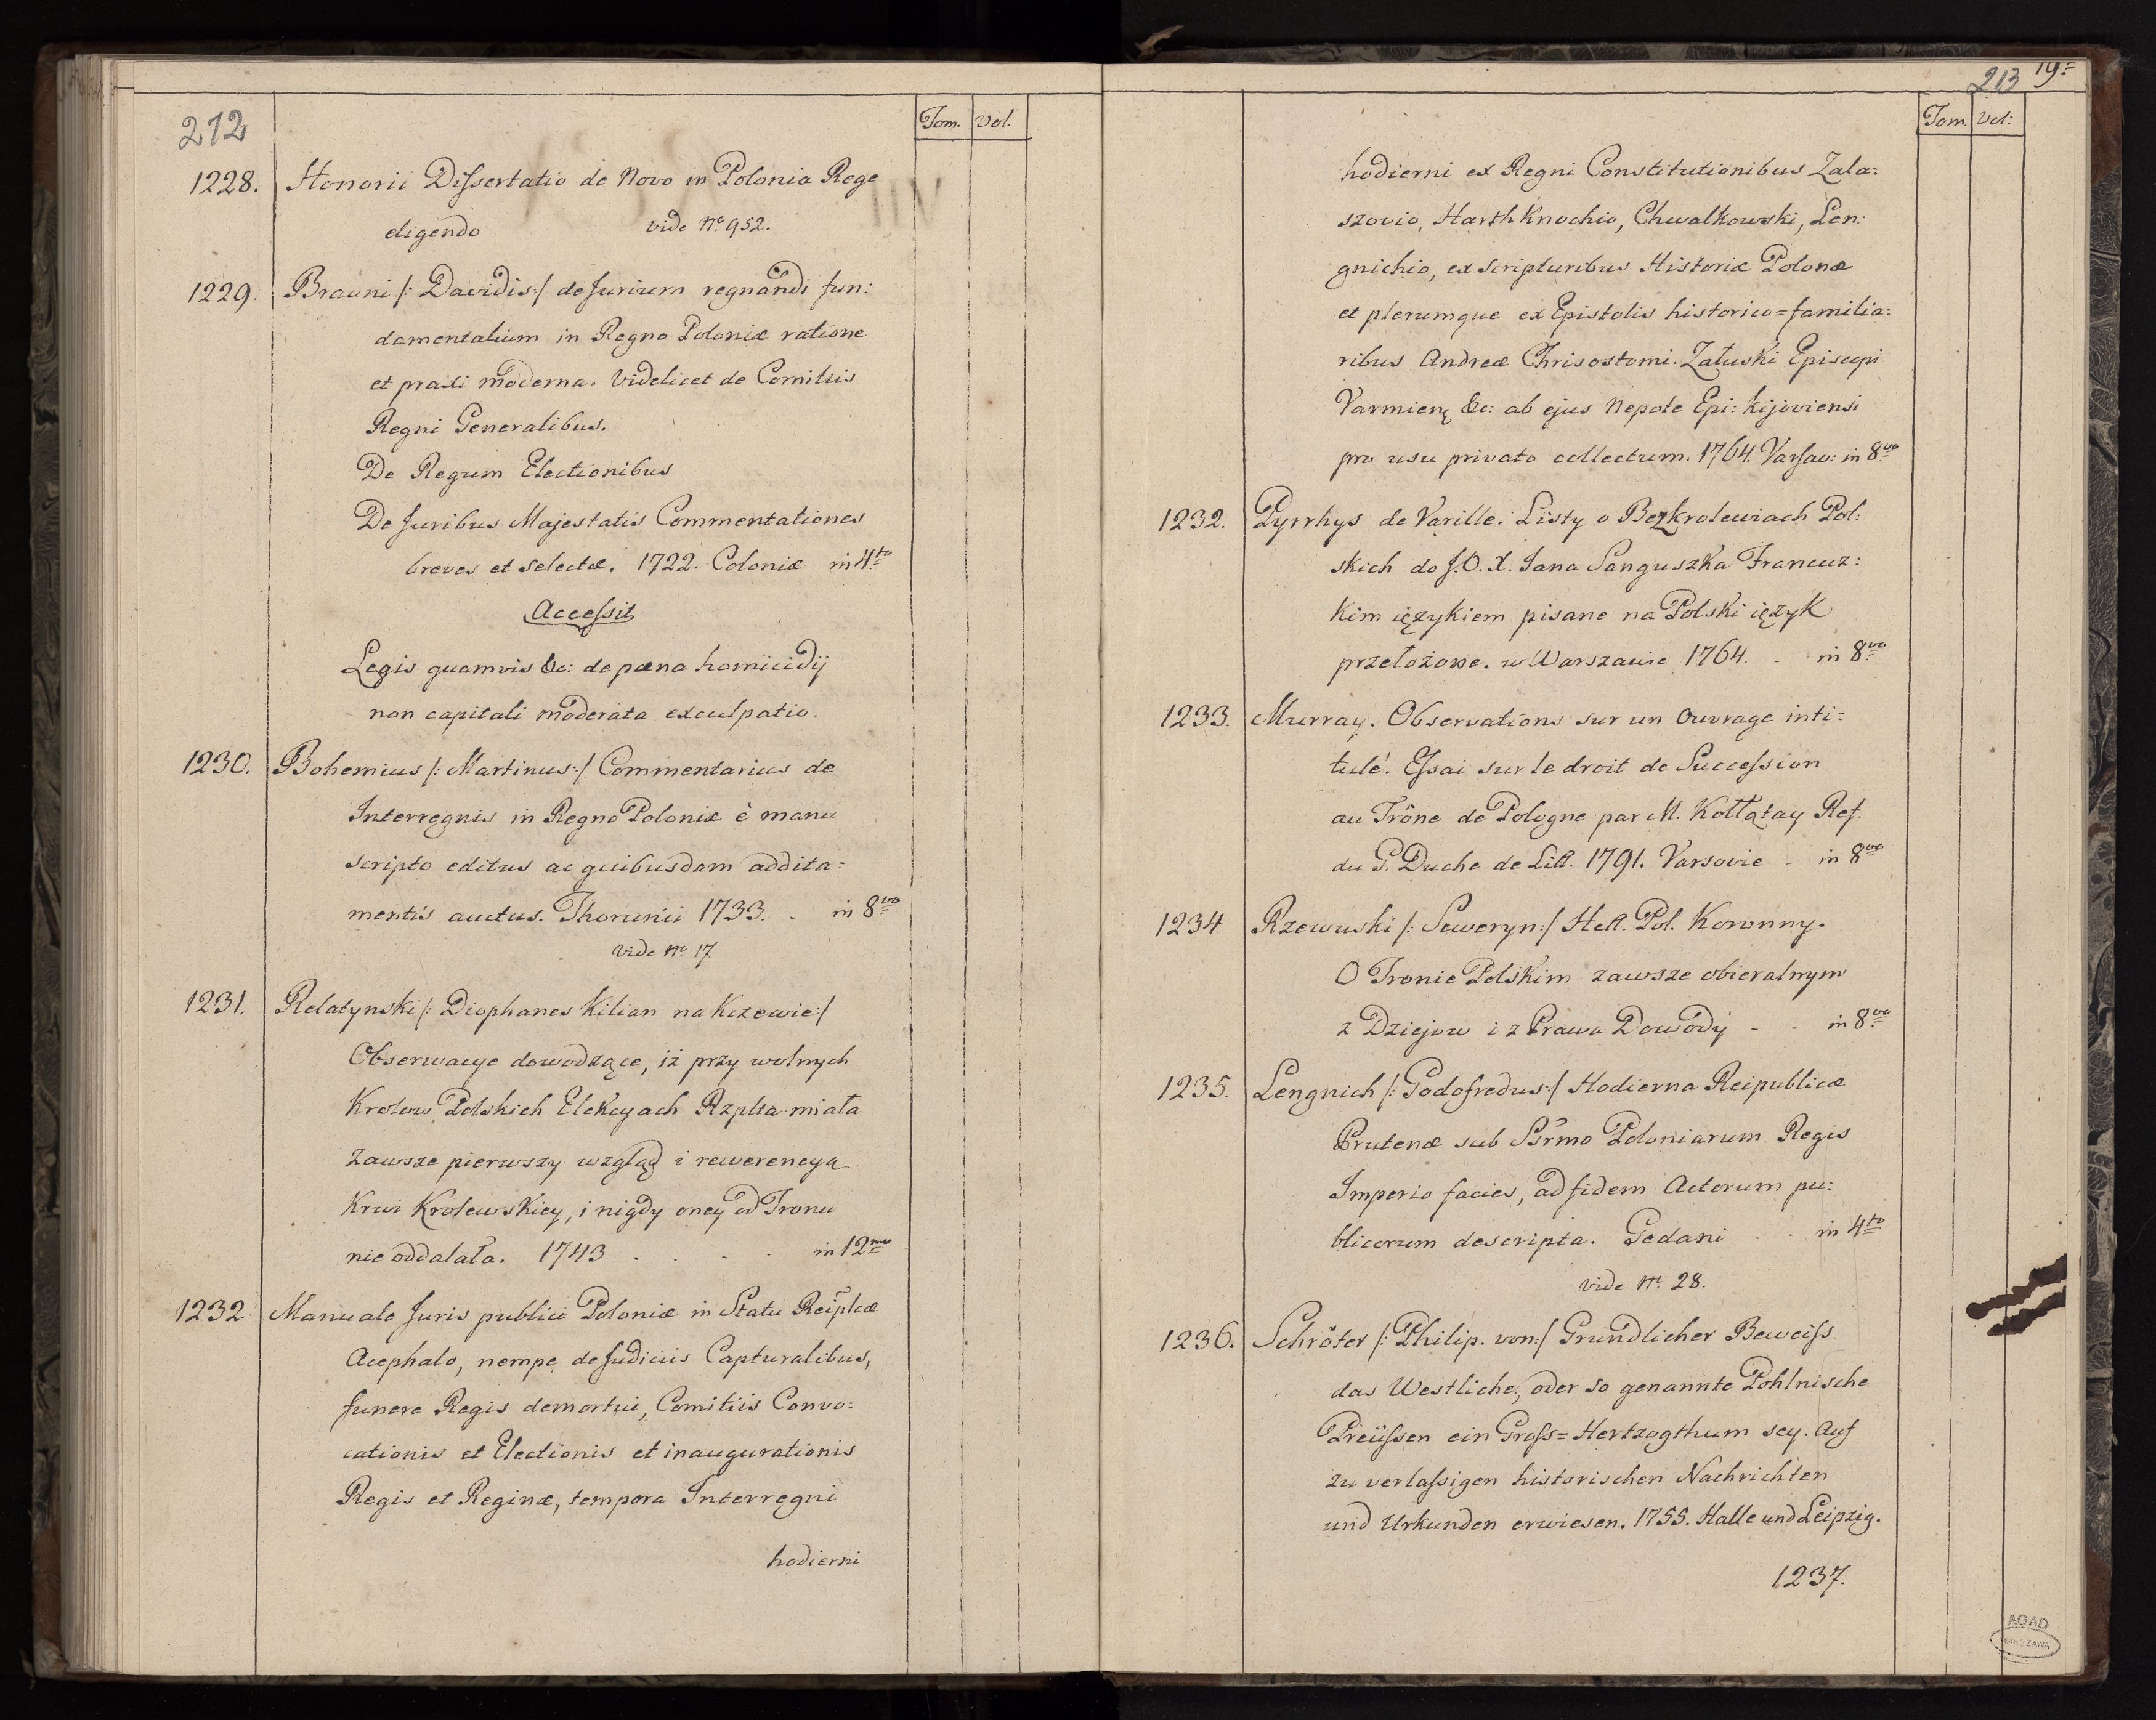 212
Tom. Vol.
1228. Honorii Dissertatio de Novo in Polonia Rege
eligendo vide No 952.
1229. Brauni /: Davidis:/ de Jurium regnandi fun:
damentalium in Regno Poloniæ ratione
et praxi moderna. Videlicet de Comitiis
Regni Generalibus.
De Regum Electionibus
De Juribus Majestatis Commentationes
breves et selectæ. 1722. Coloniæ in 4to
Accessit
Legis quamvis &c: de pæna homicidij
non capitali moderata exculpatio.
1230. Bohemius /: Martinus:/ Commentarius de
Interregnis in Regno Poloniæ è manu
scripto editus ac quibusdam addita=
mentis auctus. Thorunii 1733. - in 8vo
vide No 17
1231. Relatynski /: Diophanes Kilian na Kczewie:/
Obserwacye dowodzące, iż przy wolnych
Krolow Polskich Elekcyach Rzplta miała
zawsze pierwszy wzgląd i rewerencyą
Krwi Krolewskiey, i nigdy oney od Tronu
nie oddalała. 1743 . . . . in 12mo
1232. Manuale Juris publici Poloniæ in Statu Reiplcæ
Acephalo, nempe de Judiciis Capturalibus,
funere Regis demortui, Comitiis Convo=
cationis et Electionis et inaugurationis
Regis et Reginæ, tempora Interregni
hodierni
213 19=
Tom. Vol:
hodierni ex Regni Constitutionibus Zala=
szovio, Harth Knochio, Chwalkowski, Len:
gnichio, ex scripturibus Historiæ Polonæ
et plerumque ex Epistolis historico=familia:
ribus Andreæ Chrisostomi. Załuski Episcopi
Varmien &c: ab ejus Nepote Epi: kijoviensi
pro usu privato collectum. 1764. Varsav: in 8vo
1232. Pyrrhys de Varille. Listy o Bezkrolewiach Pol:
skich do J.O.X. Jana Sanguszka Francuz:
kim ięzykiem pisane na Polski ięzyk
przełożone. w Warszawie 1764. - in 8vo
1233. Murray. Observations sur un Ouvrage inti=
tulé. Essai sur le droit de Succession
au Trône de Pologne par M. Kołłątay Ref.
du G. Duche de Litt. 1791. Varsovie - in 8vo
1234 Rzewuski /: Seweryn:/ Hett. Pol. Koronny.
O Tronie Polskim zawsze obieralnym
z Dziejow i z Prawa Dowody - - in 8vo
1235. Lengnich /: Godofredus:/ Hodierna Reipublicæ
Prutenæ sub Ssrmo Poloniarum Regis
Imperio facies, ad fidem Actorum pu:
blicorum descripta. Gedani - - in 4to
vide No 28.
1236. Schröter /: Philip. von:/ Grundlicher Beweiss
das Westliche, oder so genannte Pohlnische
Preüssen ein Gross=Hertzogthum sey. Auf
zu verlassigen historischen Nachrichten
und Urkunden erwiesen. 1755. Halle und Leipzig.
1237.
AGAD
WARSZAWA